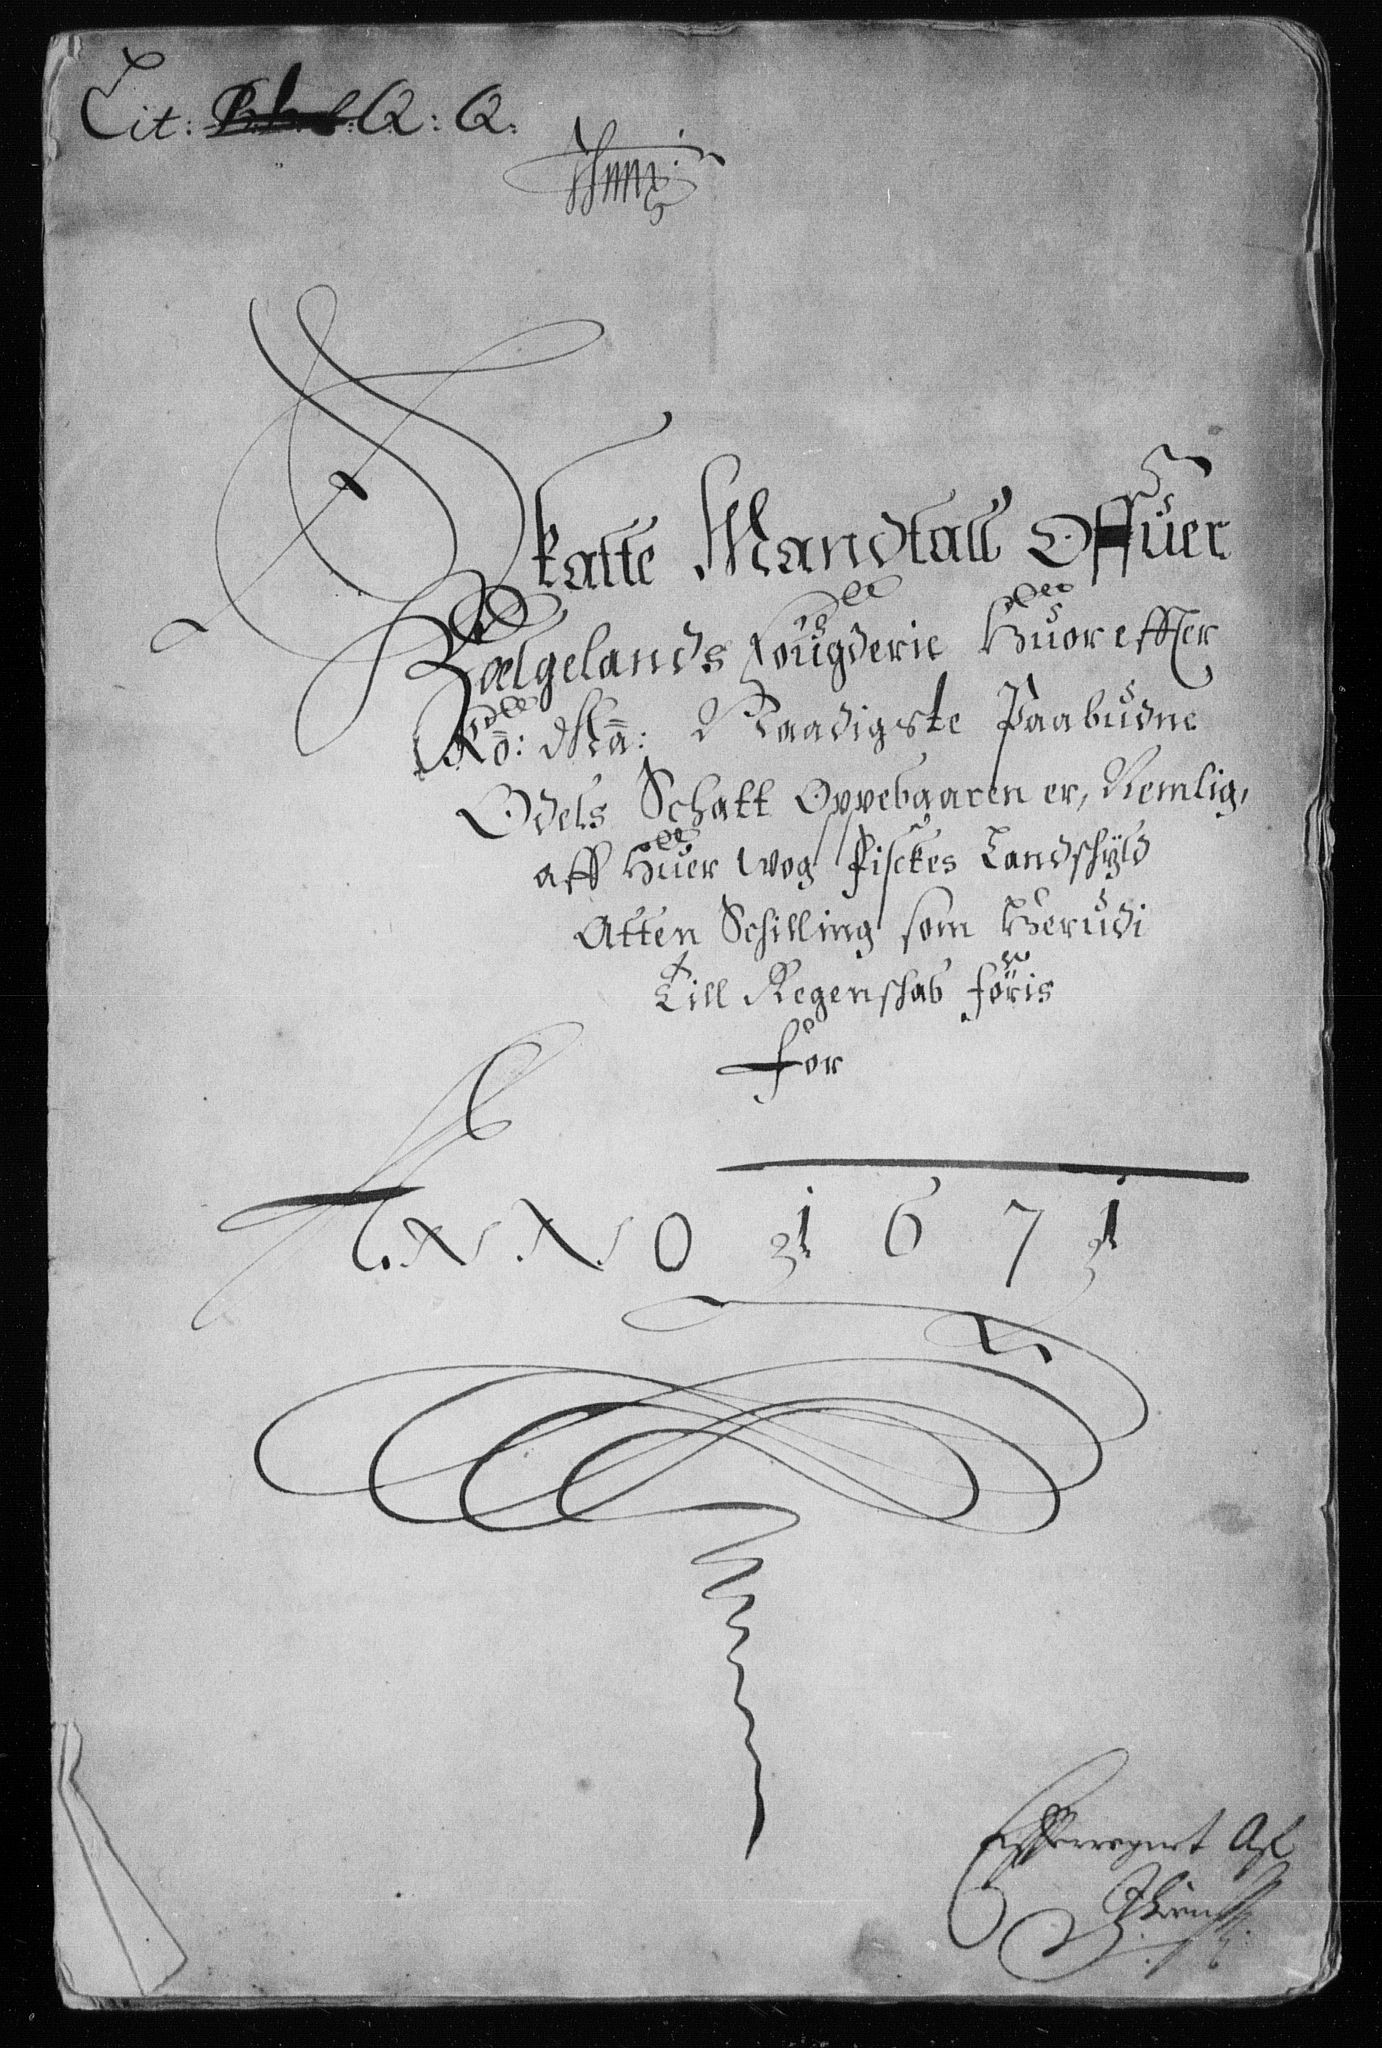 Lit: Q: Q:
Skatte Mandtall Offuer
Hælgelands Fougderie Huor effter
Kō: Mā: Naadigste Paabudne
Odels Schatt Oppebaaren er, Nemlig,
aff Huer wog Fisckes Landschyld
Atten Schilling som Herudi
Till Regenschab føris
for
ANNO 1671
Efferregnet Af